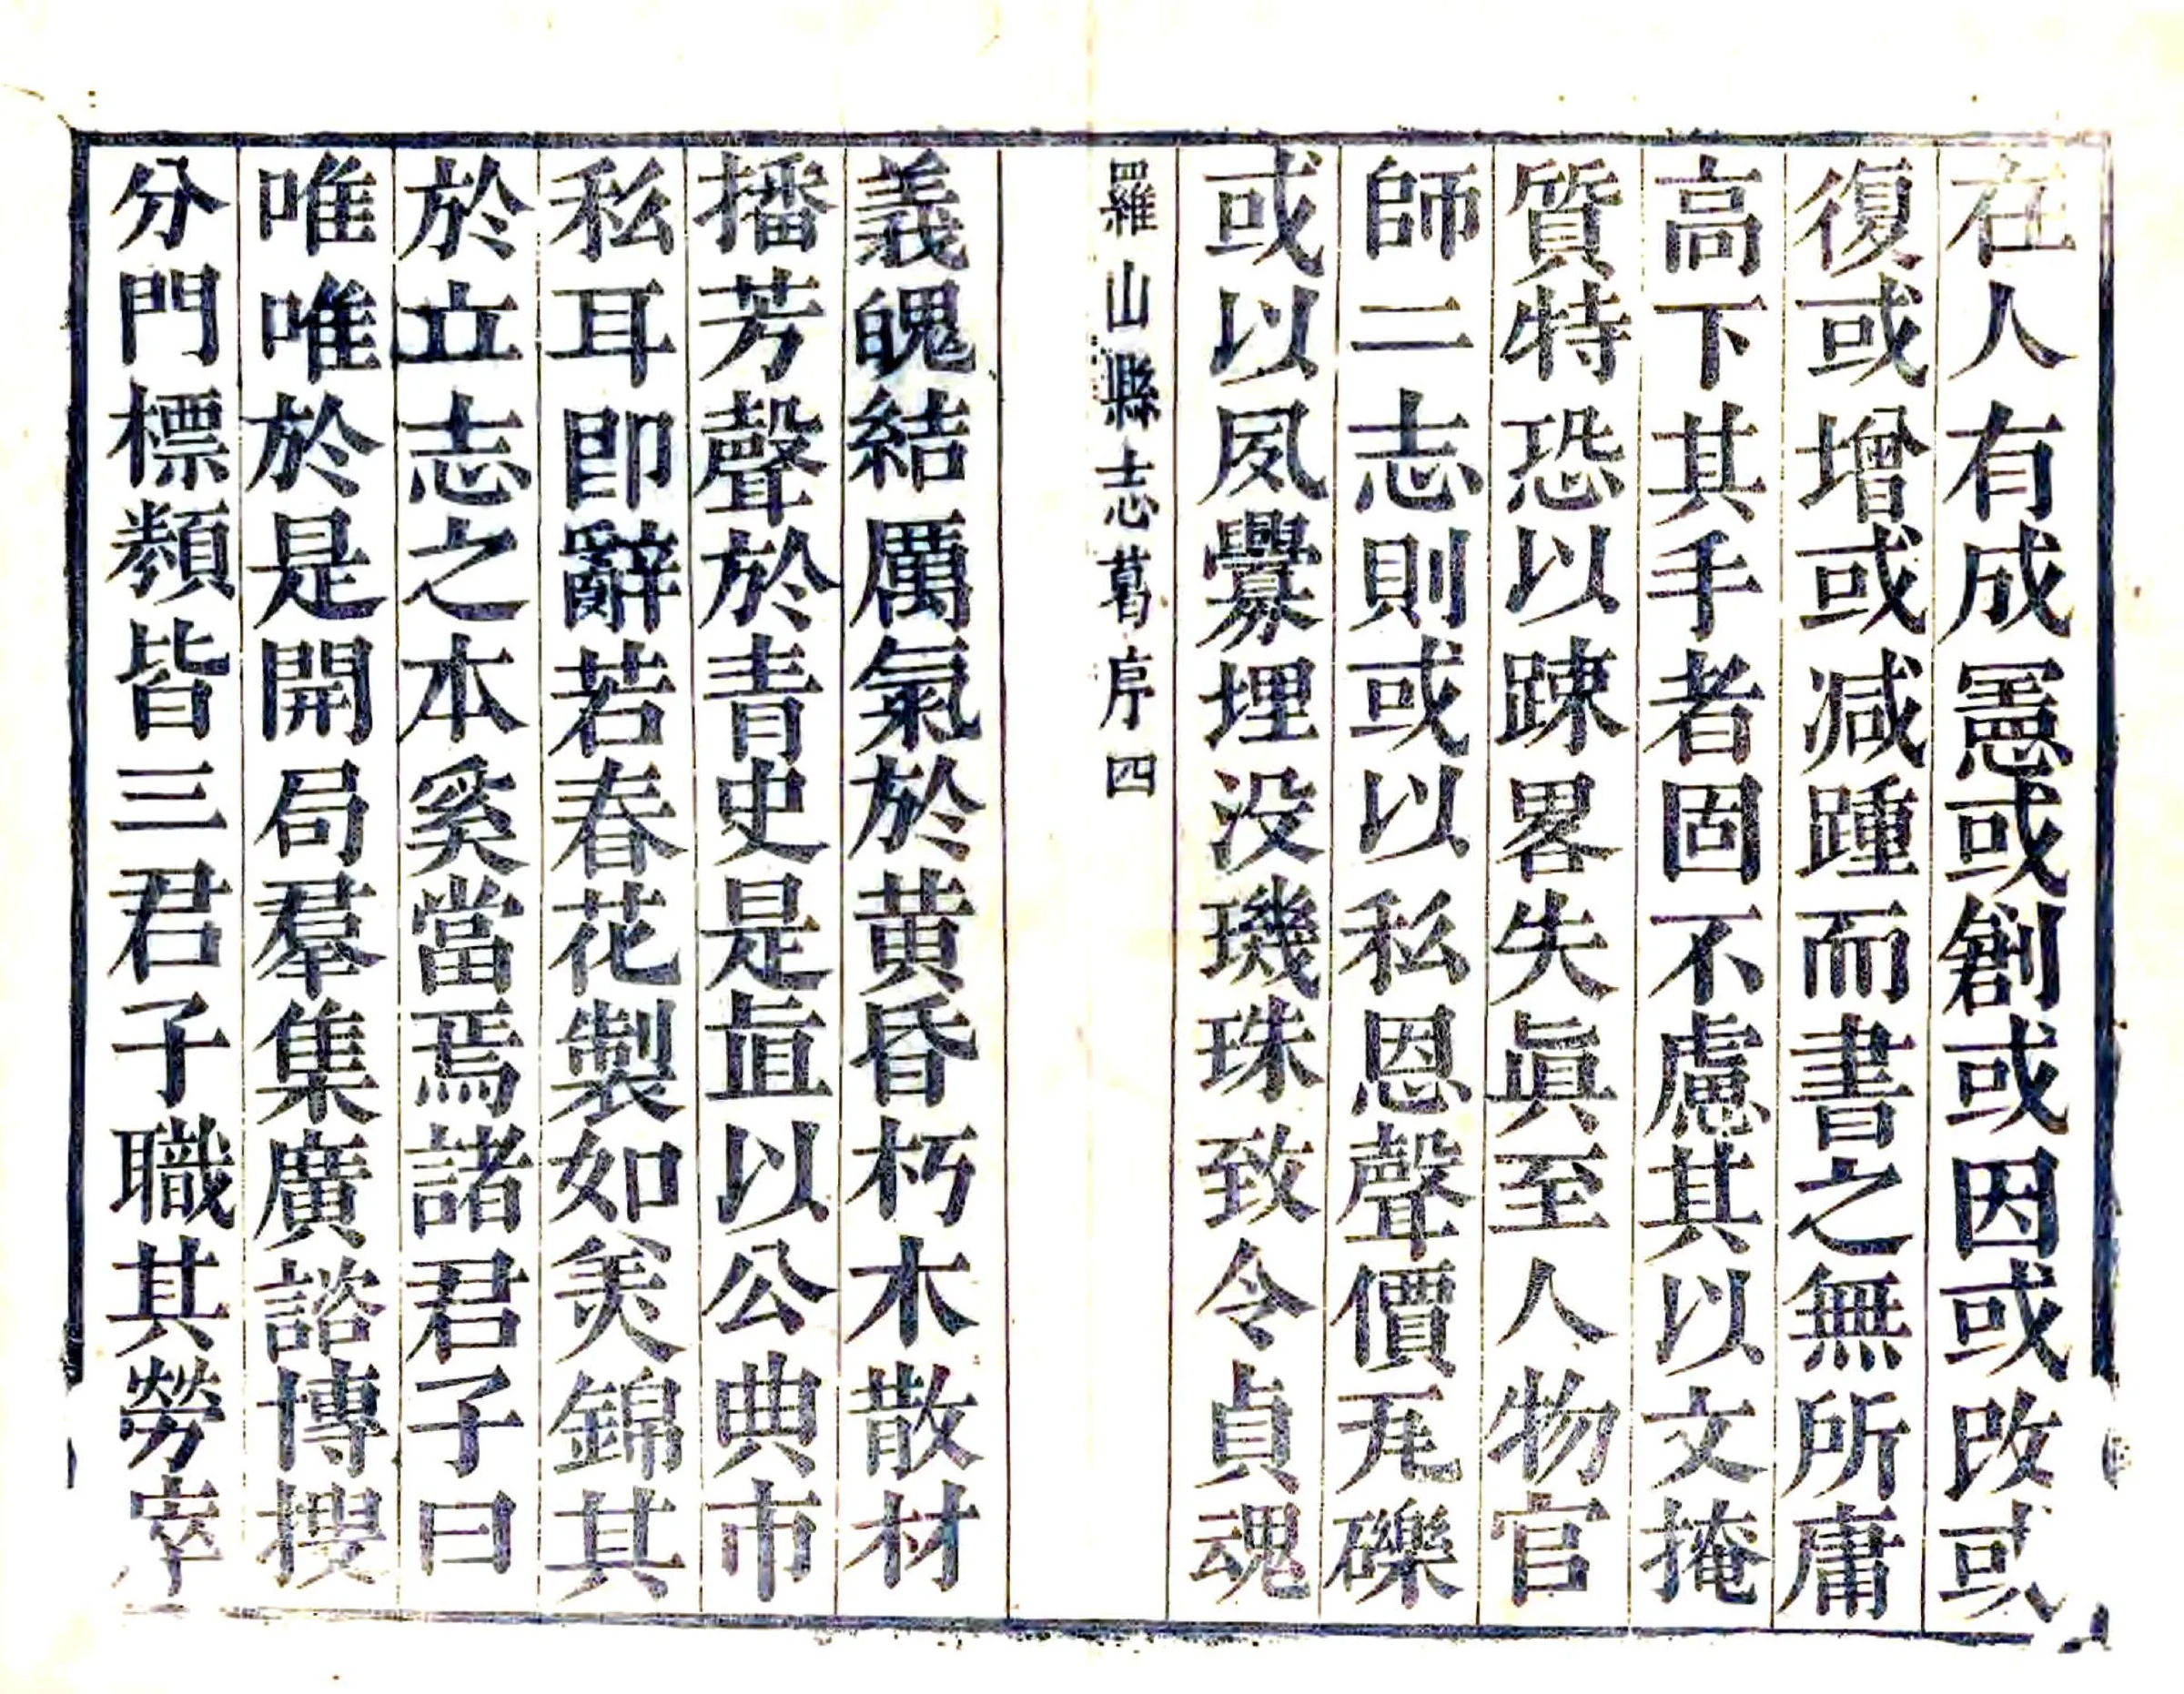 在人有成憲或創或因或改或
復或增或减踵而書之無所庸
高下其手者固不慮其以文掩
質特恐以踈畧失眞至人物官
師二志則或以私恩聲價瓦礫
或以夙釁埋没璣珠致令貞魂
羅山縣志葛序四
義魄結厲氣於黃昏朽木散材
播芳聲於青史是直以公典市
私耳卽辭若春花製如美錦其
於立志之本奚當焉諸君子曰
唯唯於是開局羣集廣諮博搜
分門標類皆三君子職其勞宰